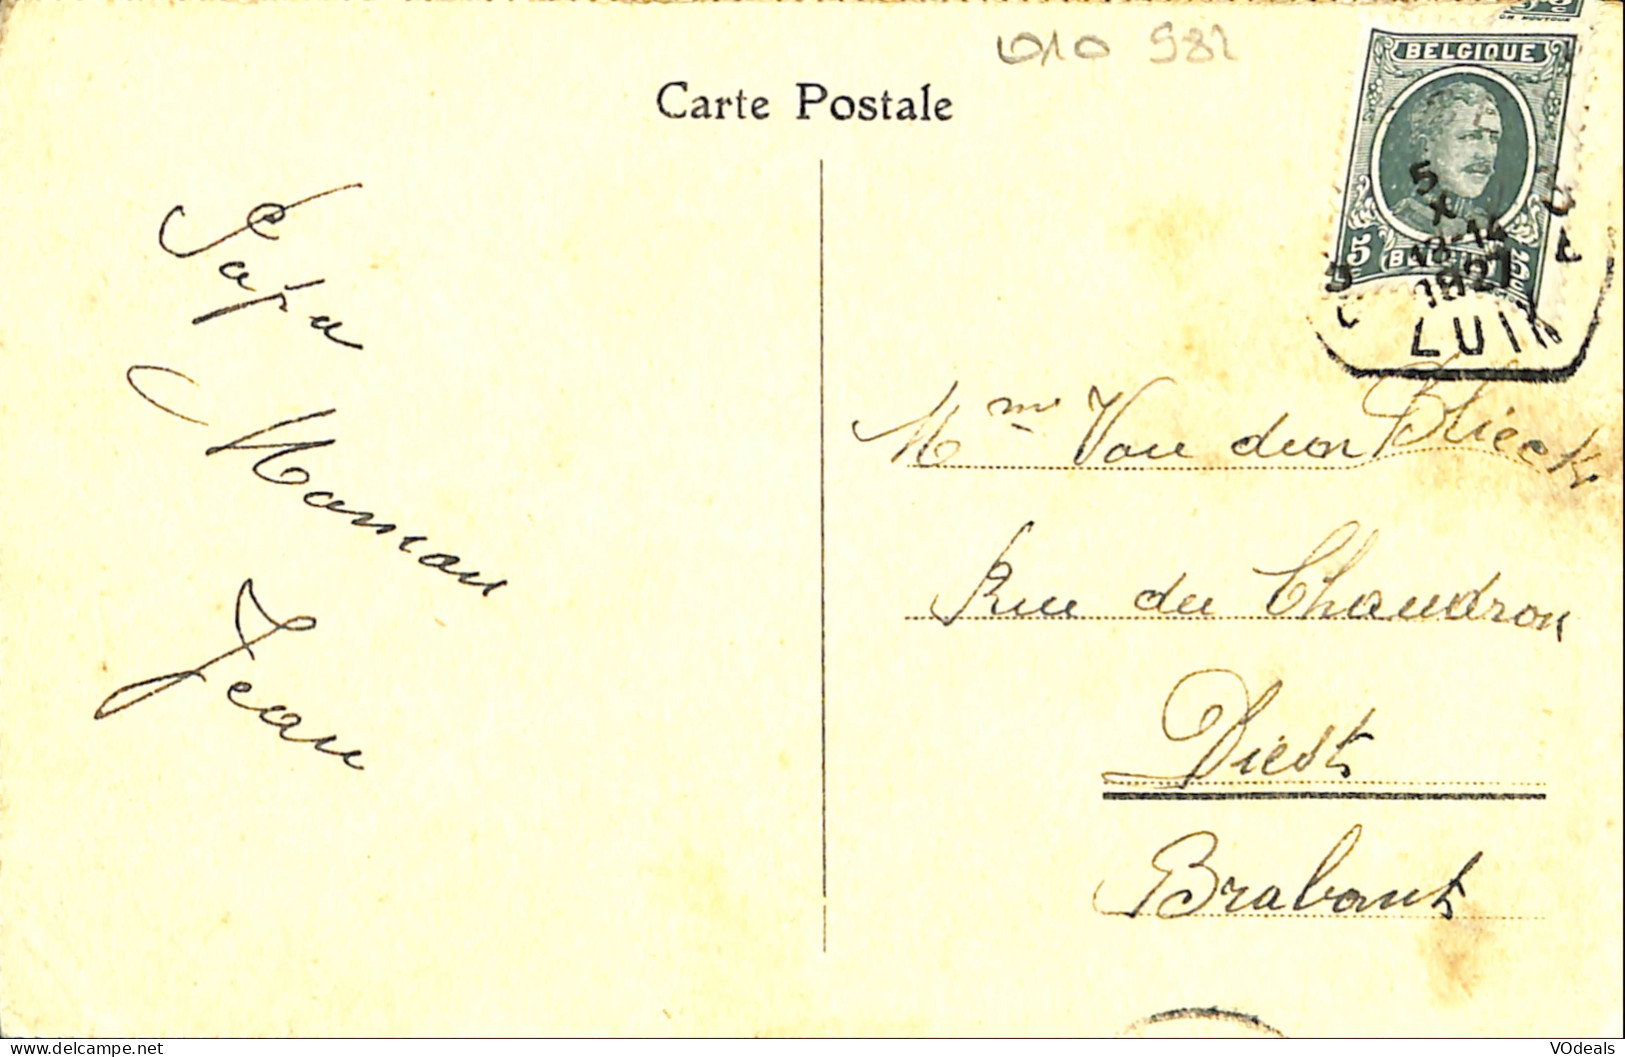 010 982
Carte Postale
BELGIQUE
5
LUIK
Papa
Maman
Jean
Mme Van den Blieck
Rue du Chaudron
Diest
Brabant
delcampe.net
VOdeals